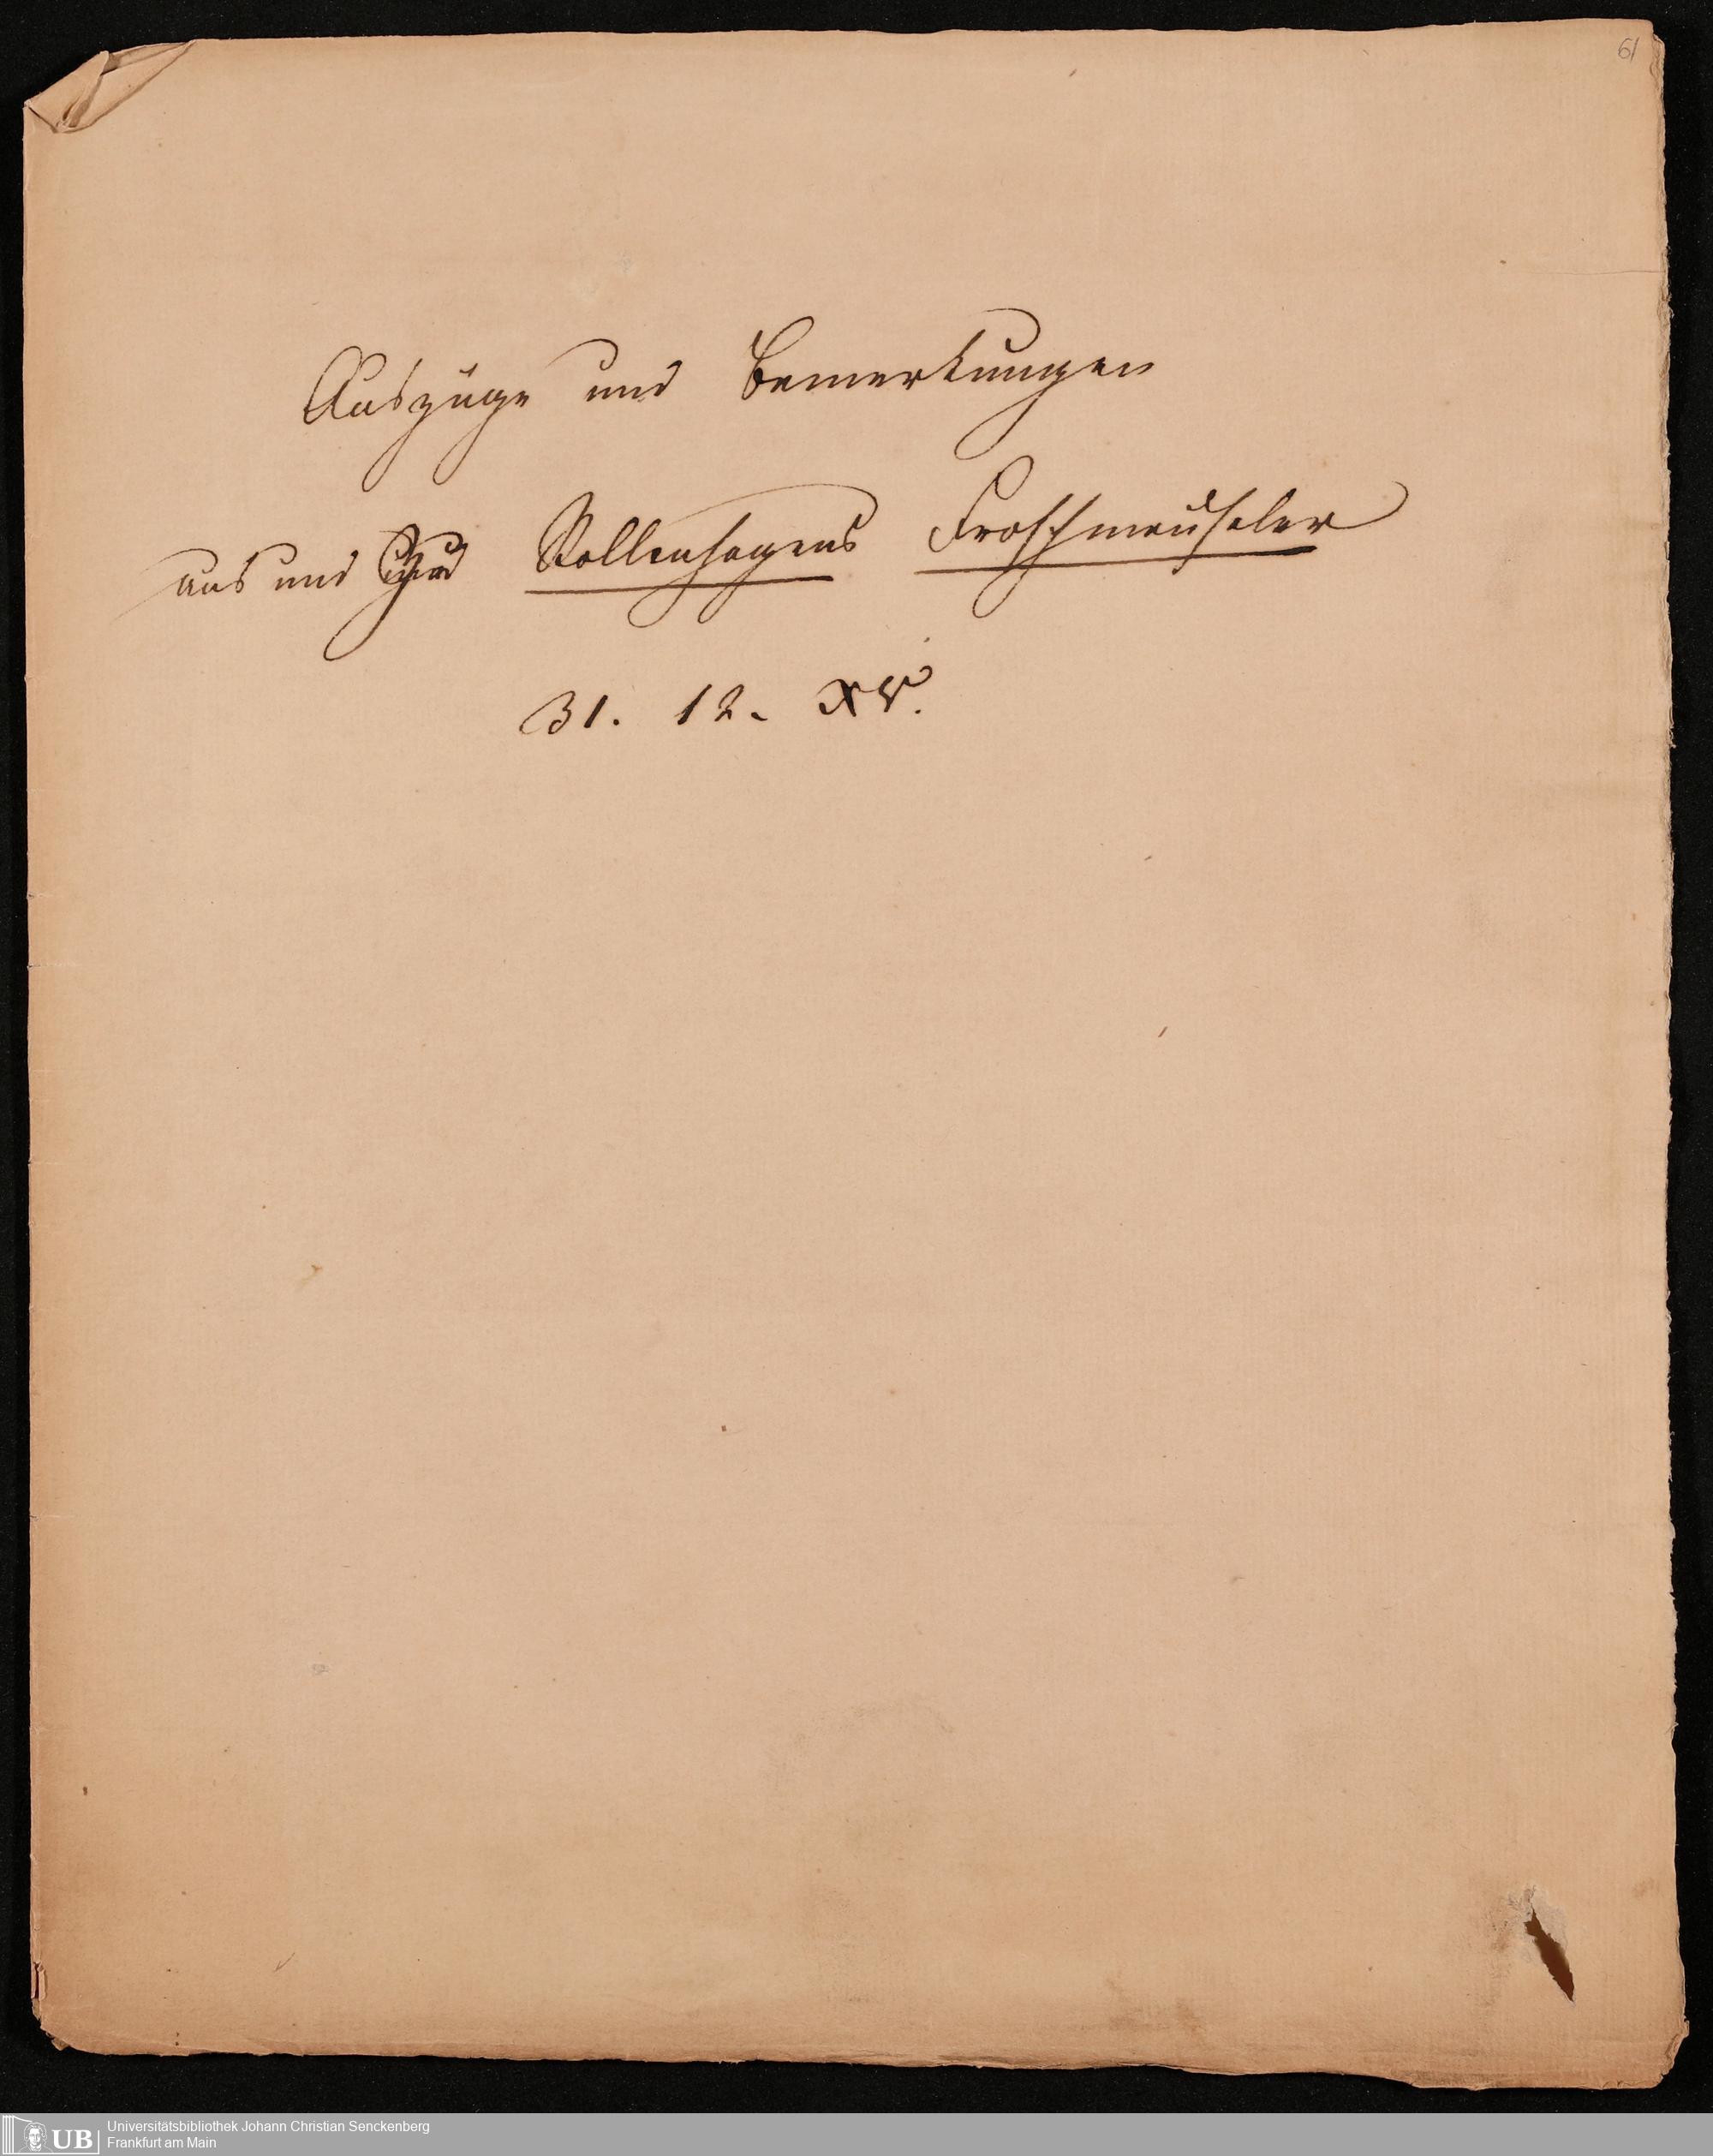 61
Auszüge und Bemerkungen
aus und zu Rollenhagens Froschmeuseler
31. 12. XV.
UB
Universitätsbibliothek Johann Christian Senckenberg
Frankfurt am Main